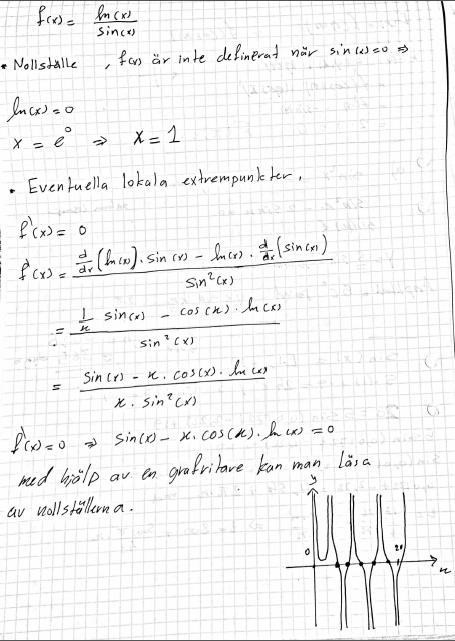 f(x) = ln(x) / sin(x)
• Nollställe, f(x) är inte definerat när sin(x)=0 ⇒
ln(x) = 0
x = e⁰ ⇒ x = 1
• Eventuella lokala extrempunkter,
f'(x) = 0
f'(x) = (d/dx (ln(x)) · sin(x) − ln(x) · d/dx (sin(x))) / sin²(x)
= (1/x sin(x) − cos(x) · ln(x)) / sin²(x)
= (sin(x) − x · cos(x) · ln(x)) / (x · sin²(x))
f'(x)=0 ⇒ sin(x) − x · cos(x) · ln(x) = 0
med hjälp av en grafritare kan man läsa
av nollställerna.
y
0
20
x